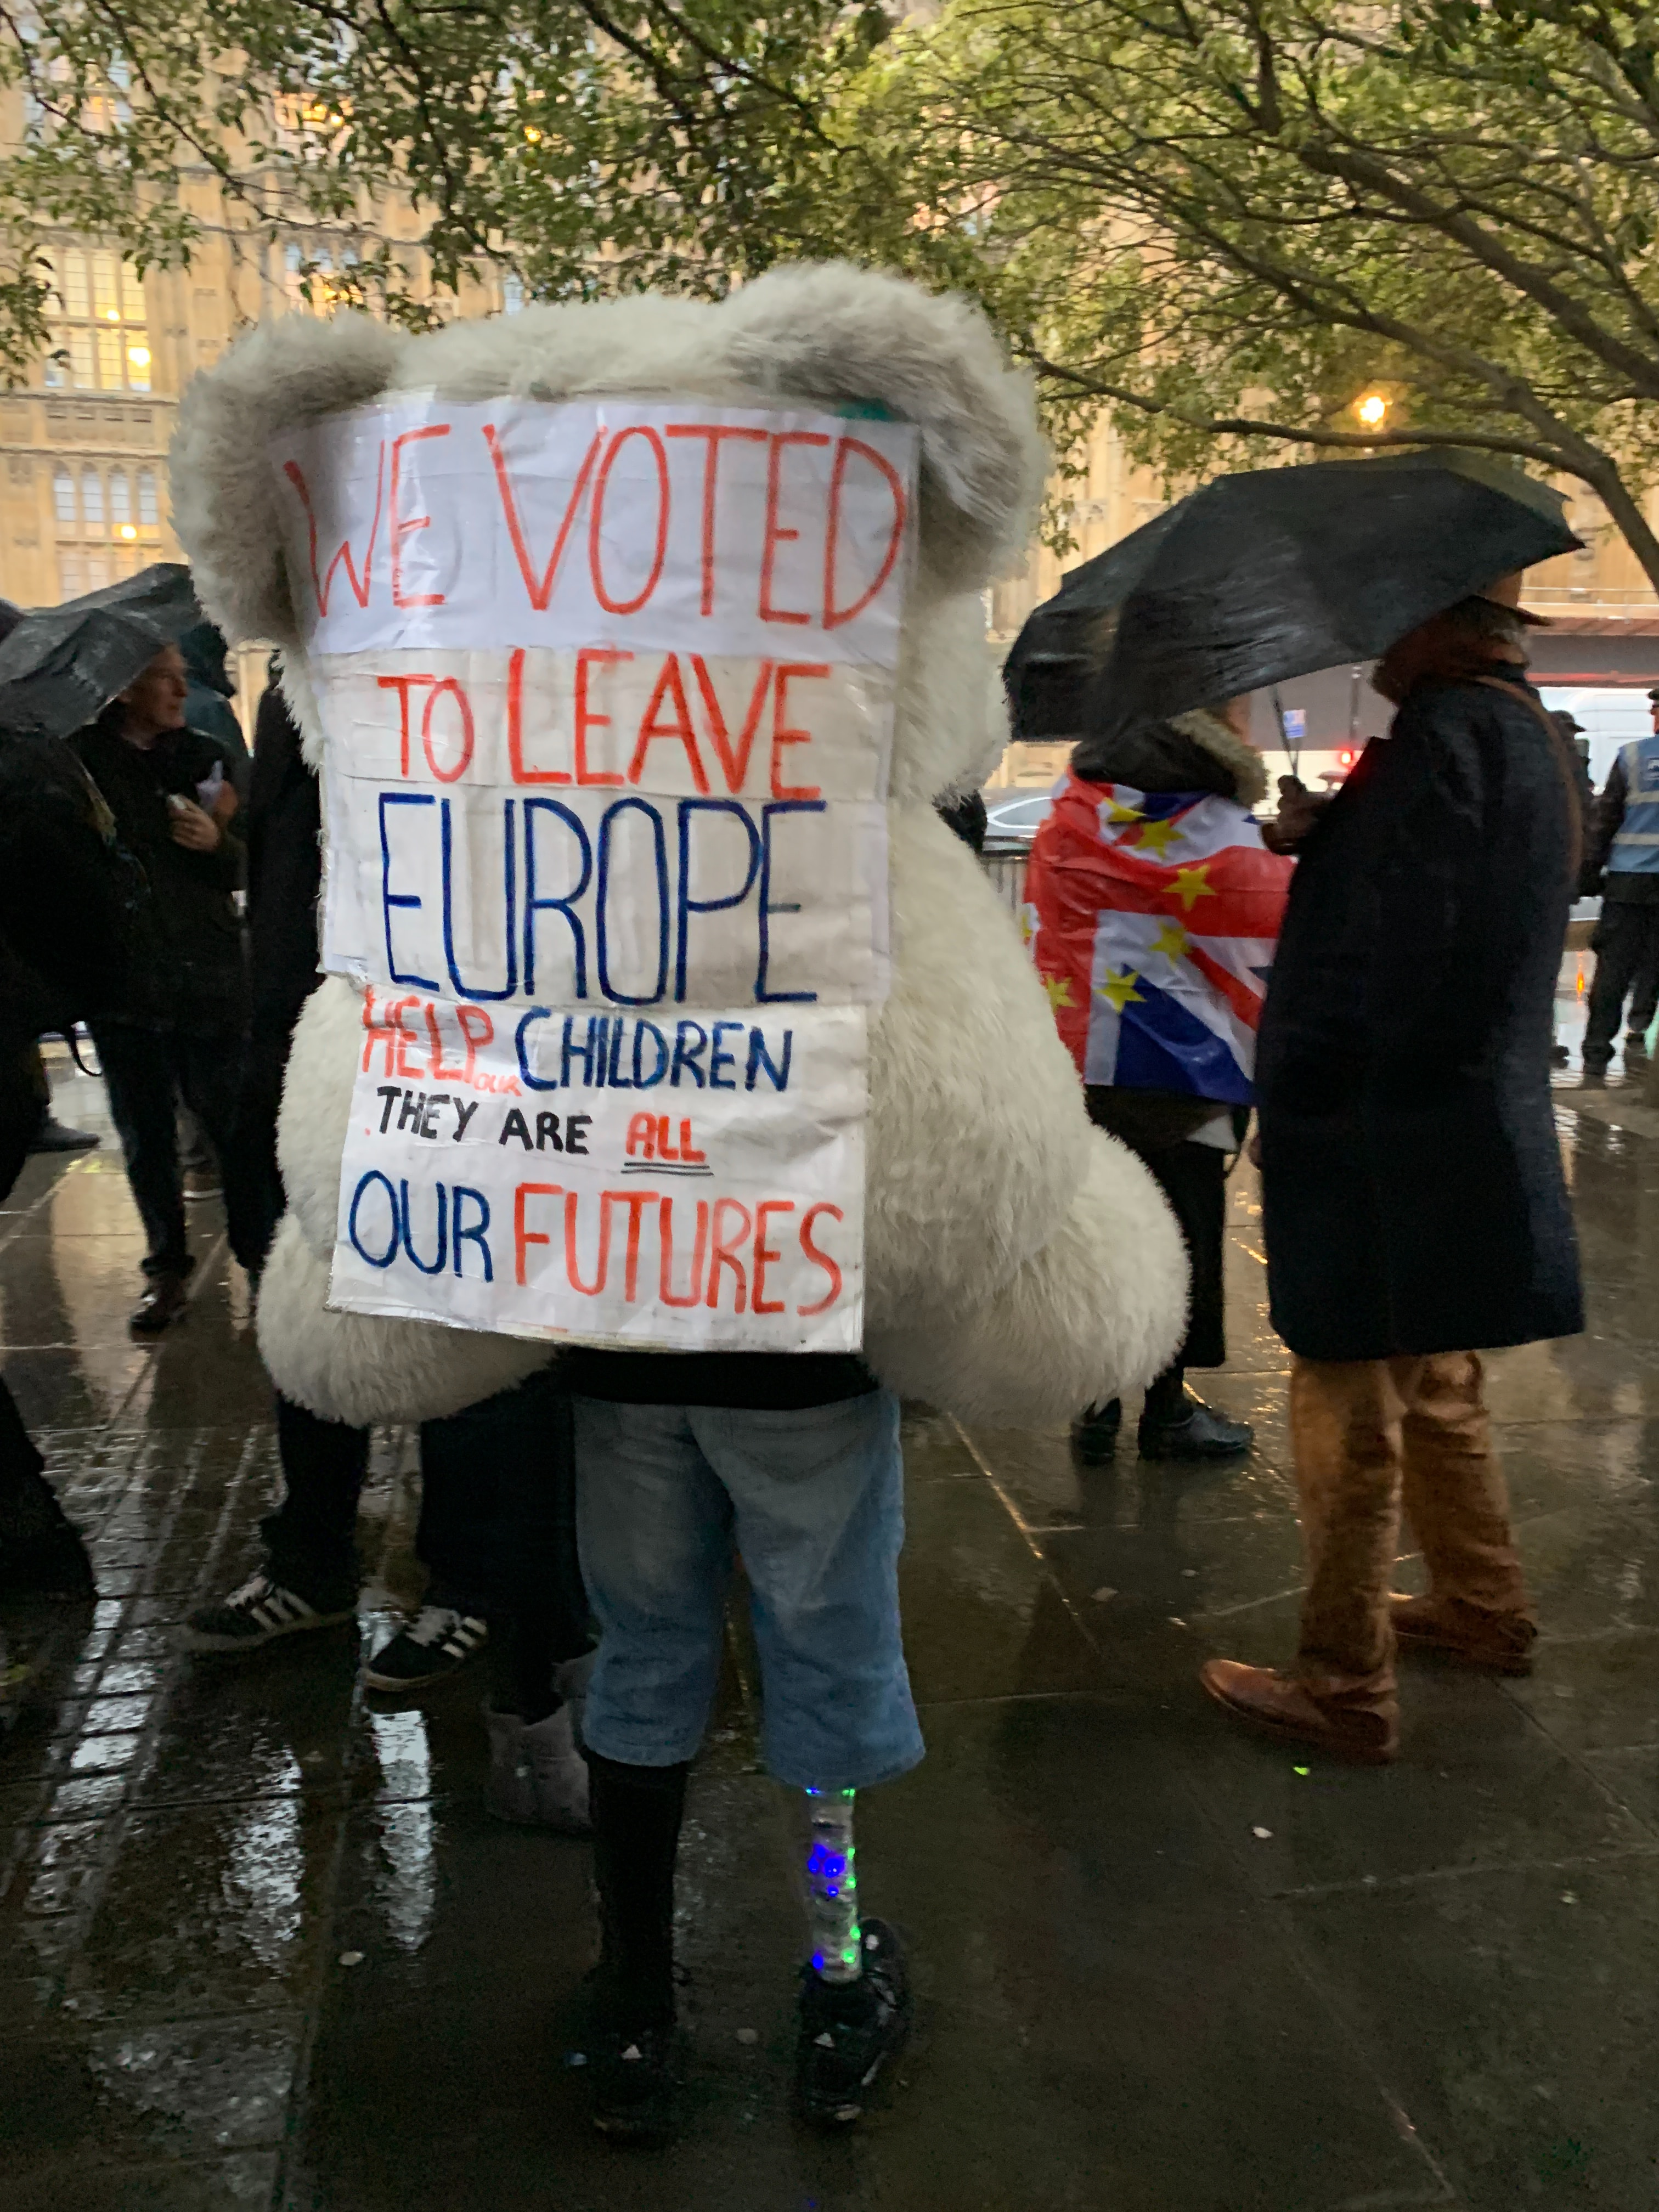 WE VOTED
TO LEAVE
EUROPE
HELP our CHILDREN
THEY ARE ALL
OUR FUTURES